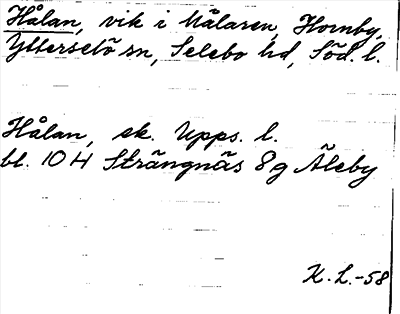 Hålan, vik i Mälaren, Hornby,
Ytterselö sn, Selebo hd, Söd. l.
Hålan, ek. Upps. l.
bl. 10 H Strängnäs 8g Äleby
K.L.-58